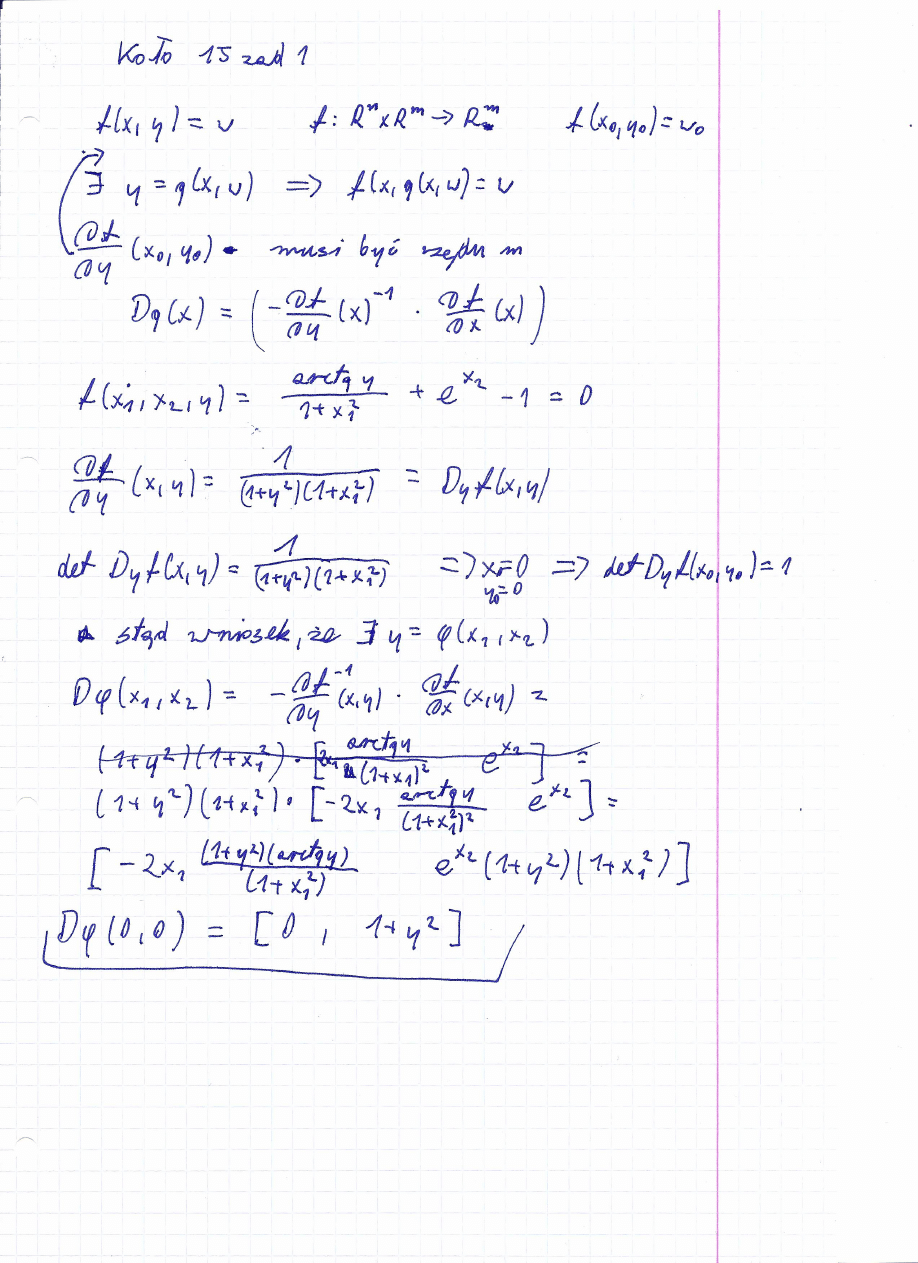 Koło 15 zad 1
f(x, y) = v f: Rⁿ x Rᵐ -> Rᵐ f(x₀, y₀) = v₀
∃ y = g(x, v) => f(x, g(x, v)) = v
∂f/∂y (x₀, y₀) - musi być rzędu m
Dg(x) = (-∂f/∂y (x)⁻¹ · ∂f/∂x (x))
f(x₁, x₂, y) = arctg y / (1+x₁²) + e^x₂ - 1 = 0
∂f/∂y (x, y) = 1 / ((1+y²)(1+x₁²)) = Dyf(x, y)
det Dyf(x, y) = 1 / ((1+y²)(1+x₁²)) => x₁=0 y₀=0 => det Dyf(x₀, y₀) = 1
stąd wniosek, że ∃ y = φ(x₁, x₂)
Dφ(x₁, x₂) = -∂f/∂y⁻¹ (x, y) · ∂f/∂x (x, y) =
(1+y²)(1+x₁²) · [2x₁ arctg y / (1+x₁)² e^x₂] =
(1+y²)(1+x₁²) · [-2x₁ arctg y / (1+x₁²)² e^x₂] =
[-2x₁ (1+y²)(arctg y) / (1+x₁²) e^x₂ (1+y²)(1+x₁²)]
Dφ(0, 0) = [0, 1+y²]